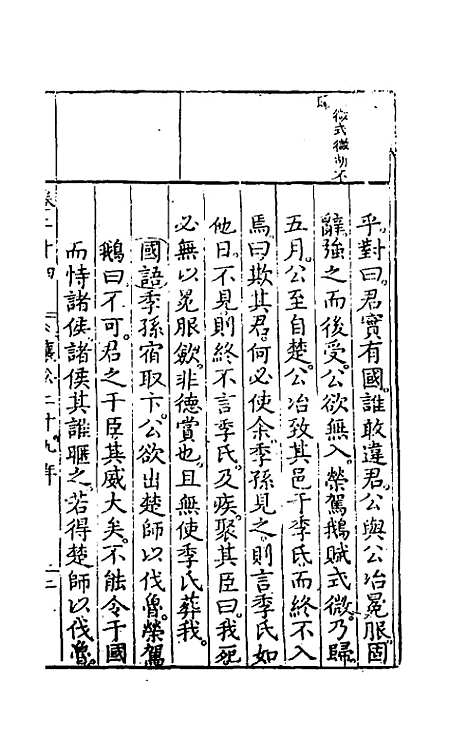 式微勸不
乎對曰君實有國誰敢違君公與公冶冕服固
辭强之而後受公欲無入榮駕鵝賦式微乃歸
五月公至自楚公冶致其邑于季氏而終不入
焉曰欺其君何必使余季孫見之則言季氏如
他日不見則終不言季氏及疾聚其臣曰我死
必無以冕服歛非德賞也且無使季氏葬我
國語季孫宿取卞公欲出楚師以伐魯榮駕
鵝曰不可君之于臣其威大矣不能令于國
而恃諸侯諸侯其誰暱之若得楚師以伐魯
卷二十四 襄公二十九年